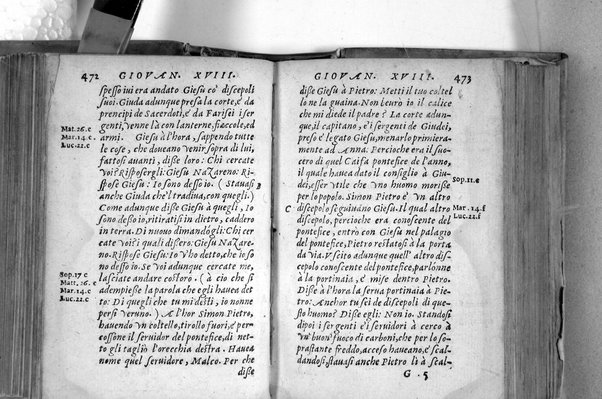 472 GIOVAN. XVIII.
spesso iui era andato Giesù co' discepoli
suoi. Giuda adunque presa la corte, & da
prencipi de Sacerdoti, & da Farisei i ser
genti, venne là con lanterne, fiaccole, ed
armi. Giesù à l'hora, sappendo tutte
le cose, che doueano venir sopra di lui,
fattosi auanti, disse loro: Chi cercate
voi? Risposergli: Giesù Nazareno: Ri-
spose Giesù: Io sono desso io. (Stauasi
anche Giuda che'l tradiua, con quegli.)
Come adunque disse Giesù à quegli, Io
sono desso io, ritiratisi in dietro, caddero
in terra. Di nuouo dimandogli: Chi cer
cate voi? i quali dissero: Giesù Nazare-
no. Rispose Giesù: Io v'ho detto, che io so
no desso io. Se voi adunque cercate me,
lasciate andare costoro. (à ciò che si
adempiesse la parola che egli hauea det
to: Di quegli che tu mi desti, io nonne
persi veruno.) A l'hor Simon Pietro,
hauendo vn coltello, tirollo fuori, & per-
cossone il seruidor del pontefice, di net-
to gli tagliò l'orecchia destra. Hauea
nome quel seruidore, Malco. Per che
disse
Mat. 26. c
Mar. 14. c
Luc. 22. c
B
Sop. 17 c
Matt. 26. c
Mar. 14. c
Luc. 22. c
GIOVAN. XVIII. 473
disse Giesù à Pietro: Metti il tuo coltel
lo ne la guaina. Non beurò io il calice
che mi diede il padre? La corte adun-
que, il capitano, e i sergenti de Giudei,
preso & legato Giesù, menarlo primiera
mente ad Anna. Percioche era il suo-
cero di quel Caifa pontefice de l'anno,
il quale hauea dato il consiglio à Giu-
dei, esser vtile che vno huomo morisse
per lo popolo. Simon Pietro & vn altro
discepolo seguiuano Giesù. Il qual altro
discepolo, percioche era conoscente del
pontefice, entrò con Giesù nel palagio
del pontefice, Pietro restatosi à la porta
da via. Vscito adunque quell' altro di-
scepolo conoscente del pontefice, parlonne
à la portinaia, & mise dentro Pietro.
Disse à l'hora la serua portinaia à Pie-
tro: Anchor tu sei de discepoli di que-
sto huomo? Disse egli: Non io. Standosi
dipoi i sergenti e i seruidori à cerco à
vn' buon' fuoco di carboni, che per lo so-
prastante freddo, acceso haueano, & scal-
dandosi, stauasi anche Pietro lì à scal-
G 5
Sop. 11. e
C
Mar. 14. f
Luc. 22. f